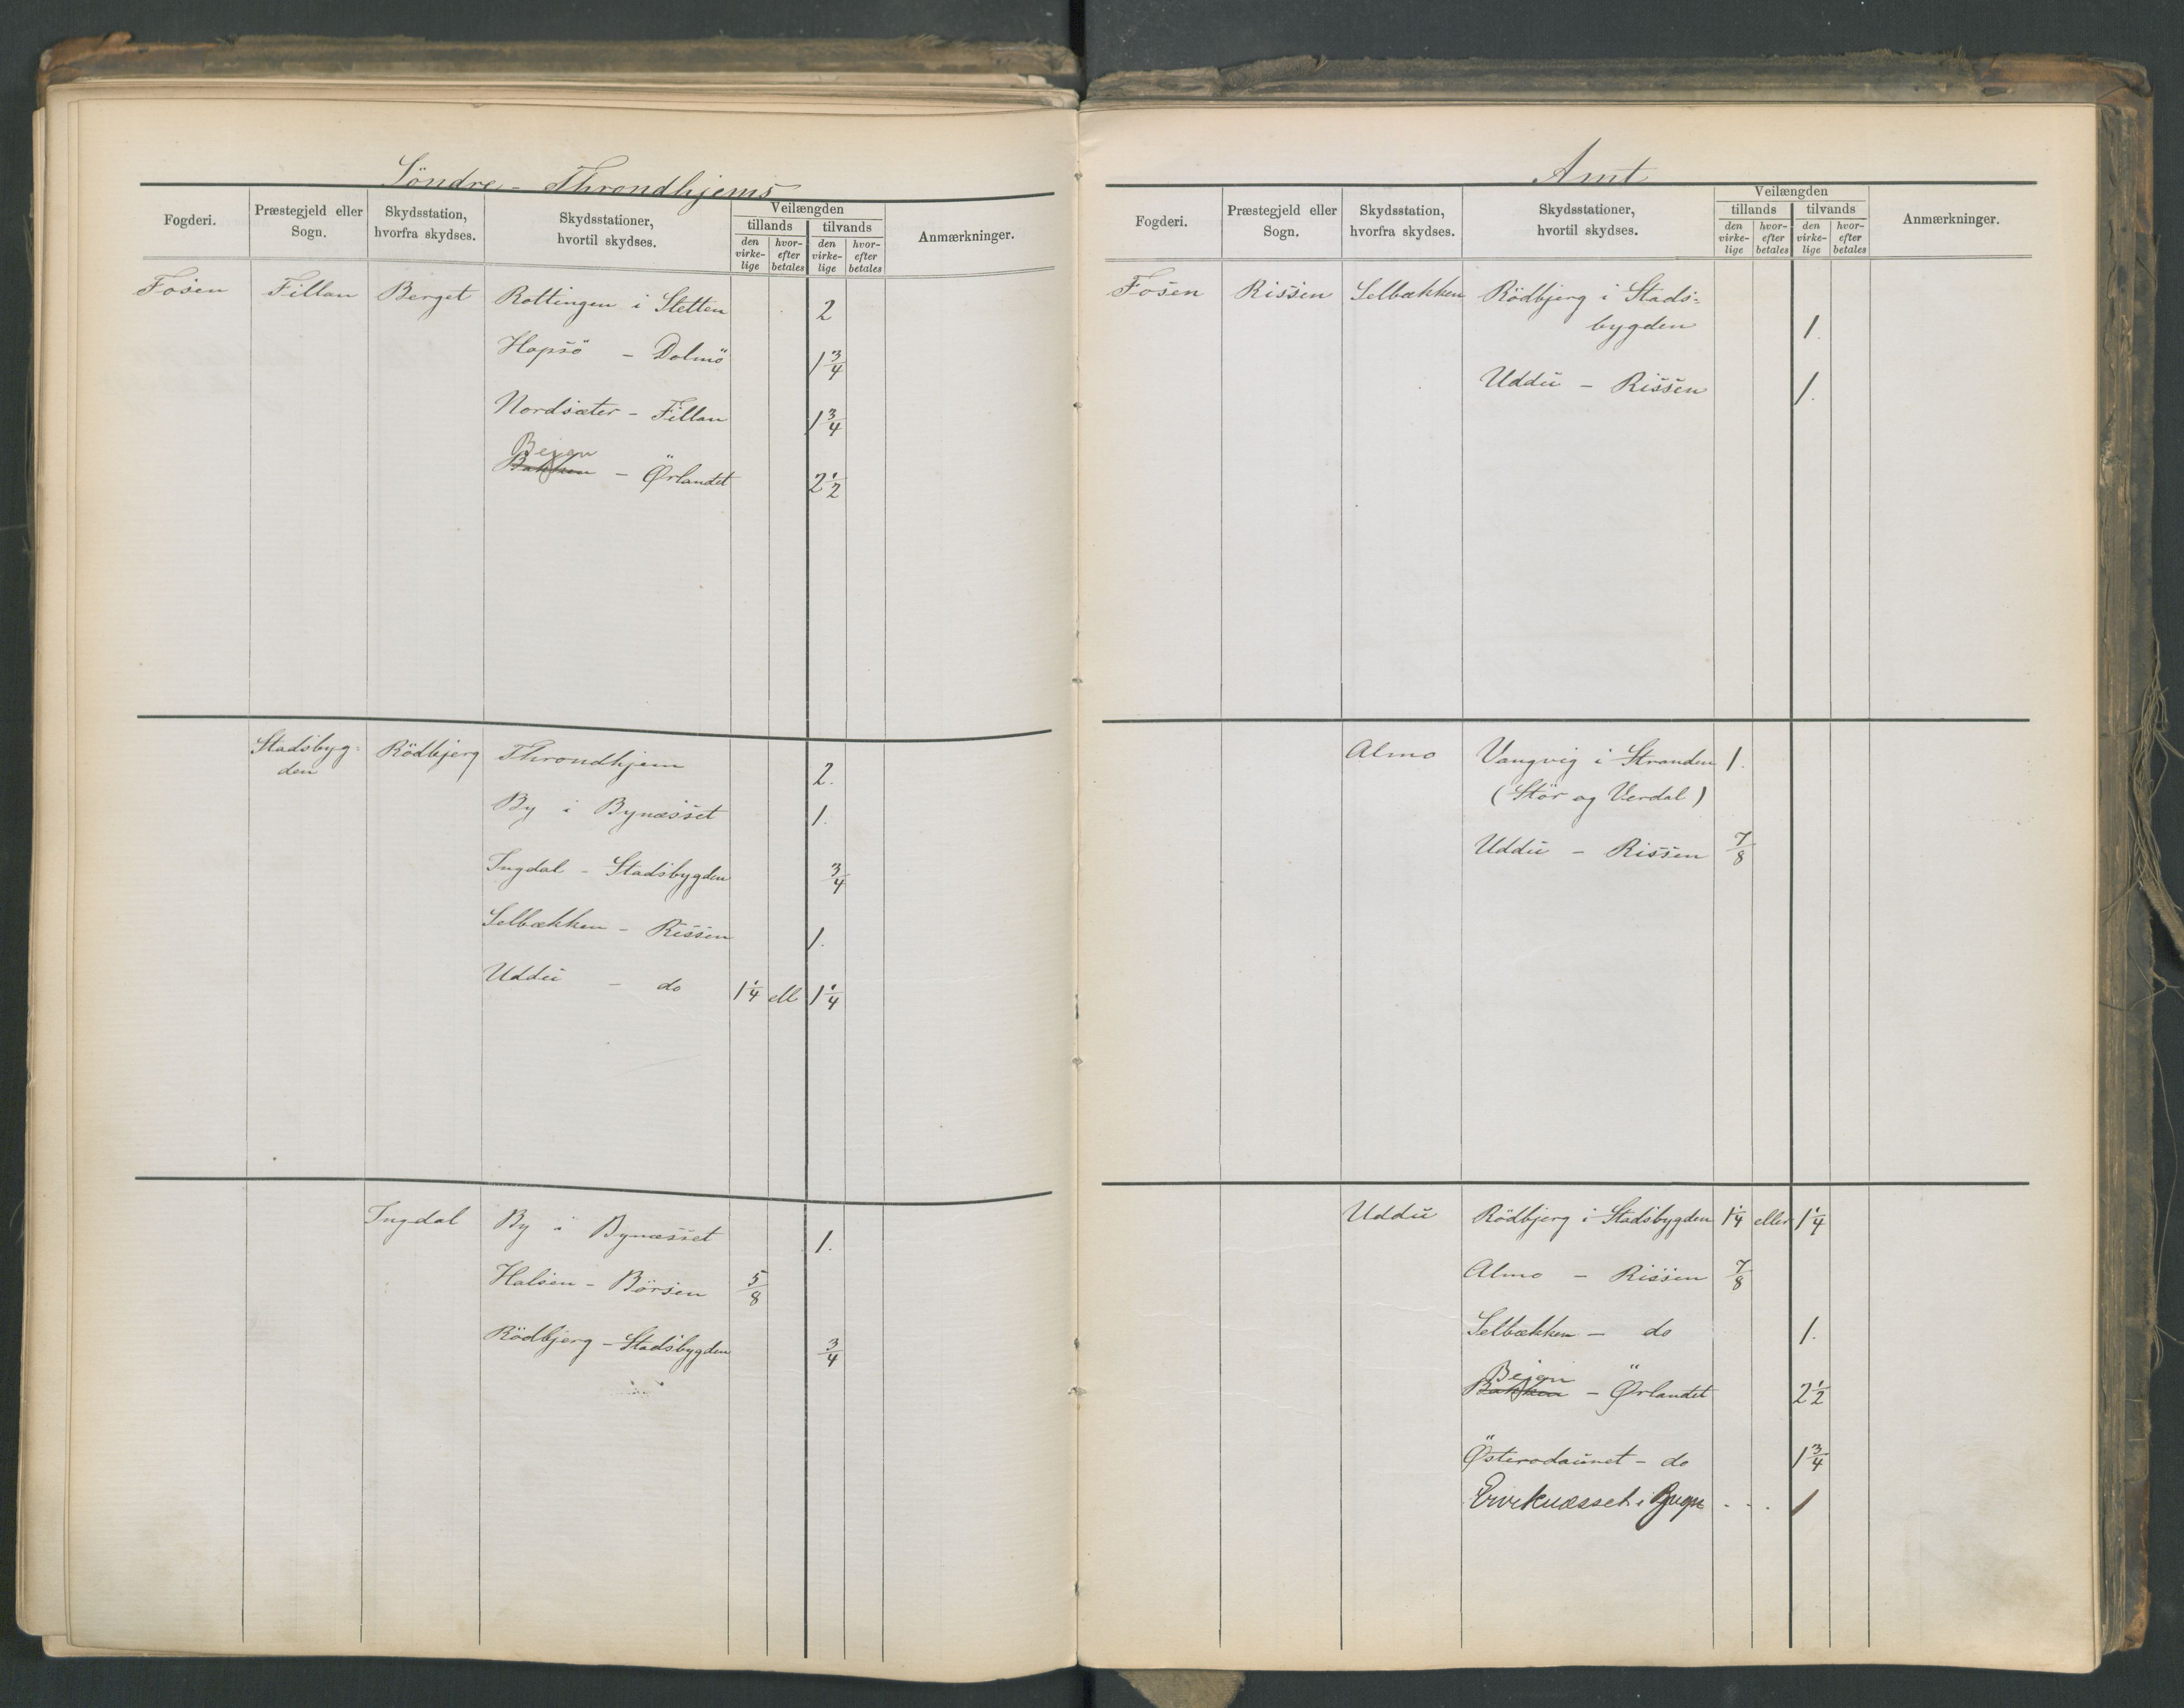 Söndre - Throndhjems
Fogderi. Præstegjeld eller Sogn. Skydsstation, hvorfra skydses. Skydsstationer, hvortil skydses. Veilængden tillands den virke-lige hvor-efter betales tilvands den virke-lige hvor-efter betales Anmærkninger.
Fosen Fillan Berget Rottingen i Sletten 2
Hopsö - Dolmö 1 3/4
Nordsæter - Fillan 1 3/4
Bejan
Bakken - Ørlandet 2 1/2
Stadsbyg- Rödbjerg Throndhjem 2.
den
By i Bynæsset 1.
Ingdal - Stadsbygden 3/4
Selbækken - Rissen 1.
Uddu - do 1 1/4 ell 1 1/4
Ingdal By i Bynæsset 1.
Halsen - Börsen 5/8
Rödbjerg - Stadsbygden 3/4
Amt
Fogderi. Præstegjeld eller Sogn. Skydsstation, hvorfra skydses. Skydsstationer, hvortil skydses. Veilængden tillands den virke-lige hvor-efter betales tilvands den virke-lige hvor-efter betales Anmærkninger.
Fosen Rissen Selbækken Rödbjerg i Stads-
bygden 1.
Uddu - Rissen 1.
Almo Vangvig i Stranden 1.
(Stör og Verdal)
Uddu - Rissen 7/8
Uddu Rödbjerg i Stadsbygden 1 1/4 eller 1 1/4
Almo - Rissen 7/8
Selbækken - do 1.
Bejan
Bakken - Ørlandet 2 1/2
Østeradaunet - do 1 3/4
i Bjugn - . . 1